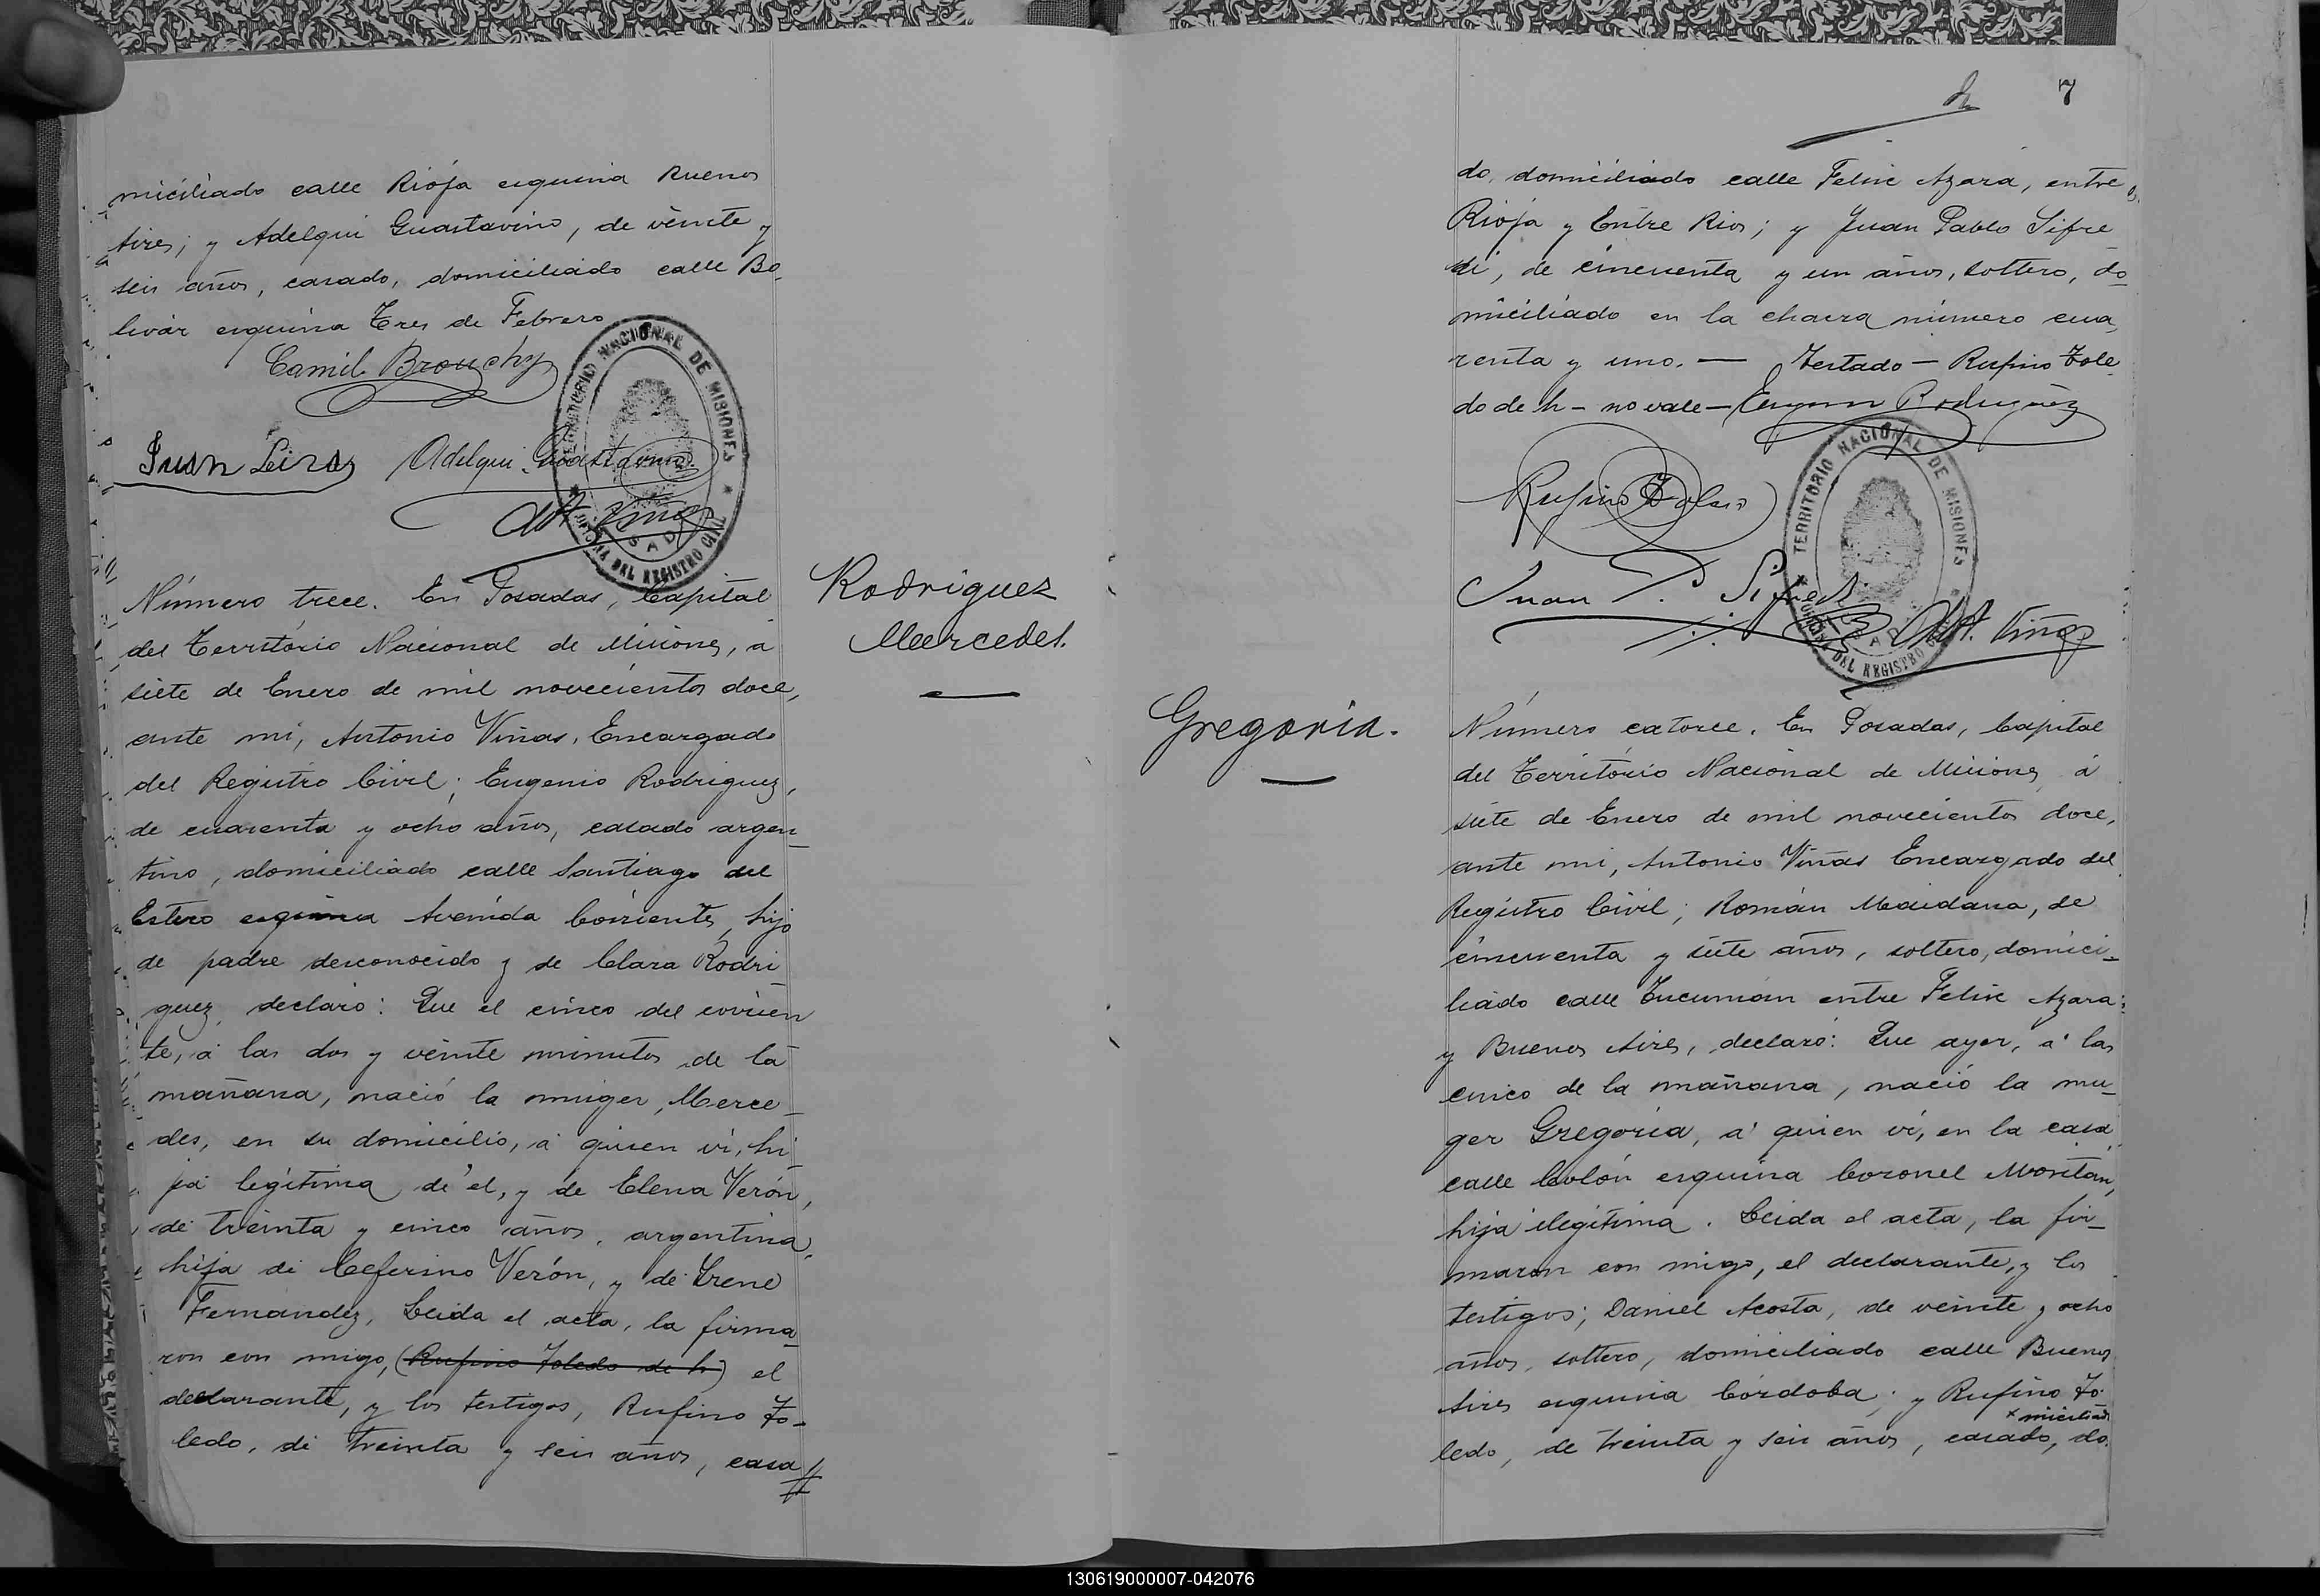 miciliado calle Rioja esquina Buenos
Aires; y Adelqui Guastavino, de veinte y
seis años, casado, domiciliado calle Bo
livar esquina Tres de Febrero
Camilo Brouchy
TERRITORIO NACIONAL DE MISIONES
OFICINA DEL REGISTRO CIVIL
Juan Leiras Adelqui Guastavino
Ant. Viñas
Número trece. En Posadas, Capital
del Território Nacional de Misiones, á
siete de Enero de mil novecientos doce,
ante mi, Antonio Viñas, Encargado
del Registro Civil; Eugenio Rodriguez,
de cuarenta y ocho años, casado argen
tino, domiciliado calle Santiago del
Estero esquina Avenida Corrientes, hijo
de padre desconocido y de Clara Rodri
guez, declaró: Que el cinco del corrien
te, á las dos y veinte minutos de la
mañana, nació la muger, Merce
des, en su domicilio, á quien ví, hi
ja legitima de él, y de Elena Verón,
de treinta y cinco años, argentina,
hija de Ceferino Verón, y de Irene
Fernandez, Leida el acta, la firma
ron con migo, (Rufino Toledo de h) el
declarante, y los testigos, Rufino To-
ledo, de treinta y seis años, casa//
Rodriguez
Mercedes.
7
do, domiciliado calle Felix Azara, entre
Rioja y Entre Rios; y Juan Pablo Sifre
di, de cincuenta y un años, soltero, do
miciliado en la chacra número cua
renta y uno. — Testado — Rufino Tole
do de h - no vale — Eugenio Rodriguez
Rufino Toledo
TERRITORIO NACIONAL DE MISIONES
OFICINA DEL REGISTRO CIVIL
Juan P. Sifredi
Ant. Viñas
Gregoria.
Número catorce. En Posadas, Capital
del Território Nacional de Misiones, á
siete de Enero de mil novecientos doce,
ante mi, Antonio Viñas Encargado del
Registro Civil; Román Maidana, de
cincuenta y siete años, soltero, domici-
liado calle Tucumán entre Felix Azara
y Buenos Aires, declaró: Que ayer, á las
cinco de la mañana, nació la mu-
ger Gregoria, á quien ví, en la casa
calle Colón esquina Coronel Moritán,
hija ilegitima. Leida el acta, la fir-
maron con migo, el declarante, y los
testigos; Daniel Acosta, de veinte y ocho
años, soltero, domiciliado calle Buenos
Aires esquina Córdoba; y Rufino To
ledo, de treinta y seis años, casado, do
x miciliado
130619000007-042076